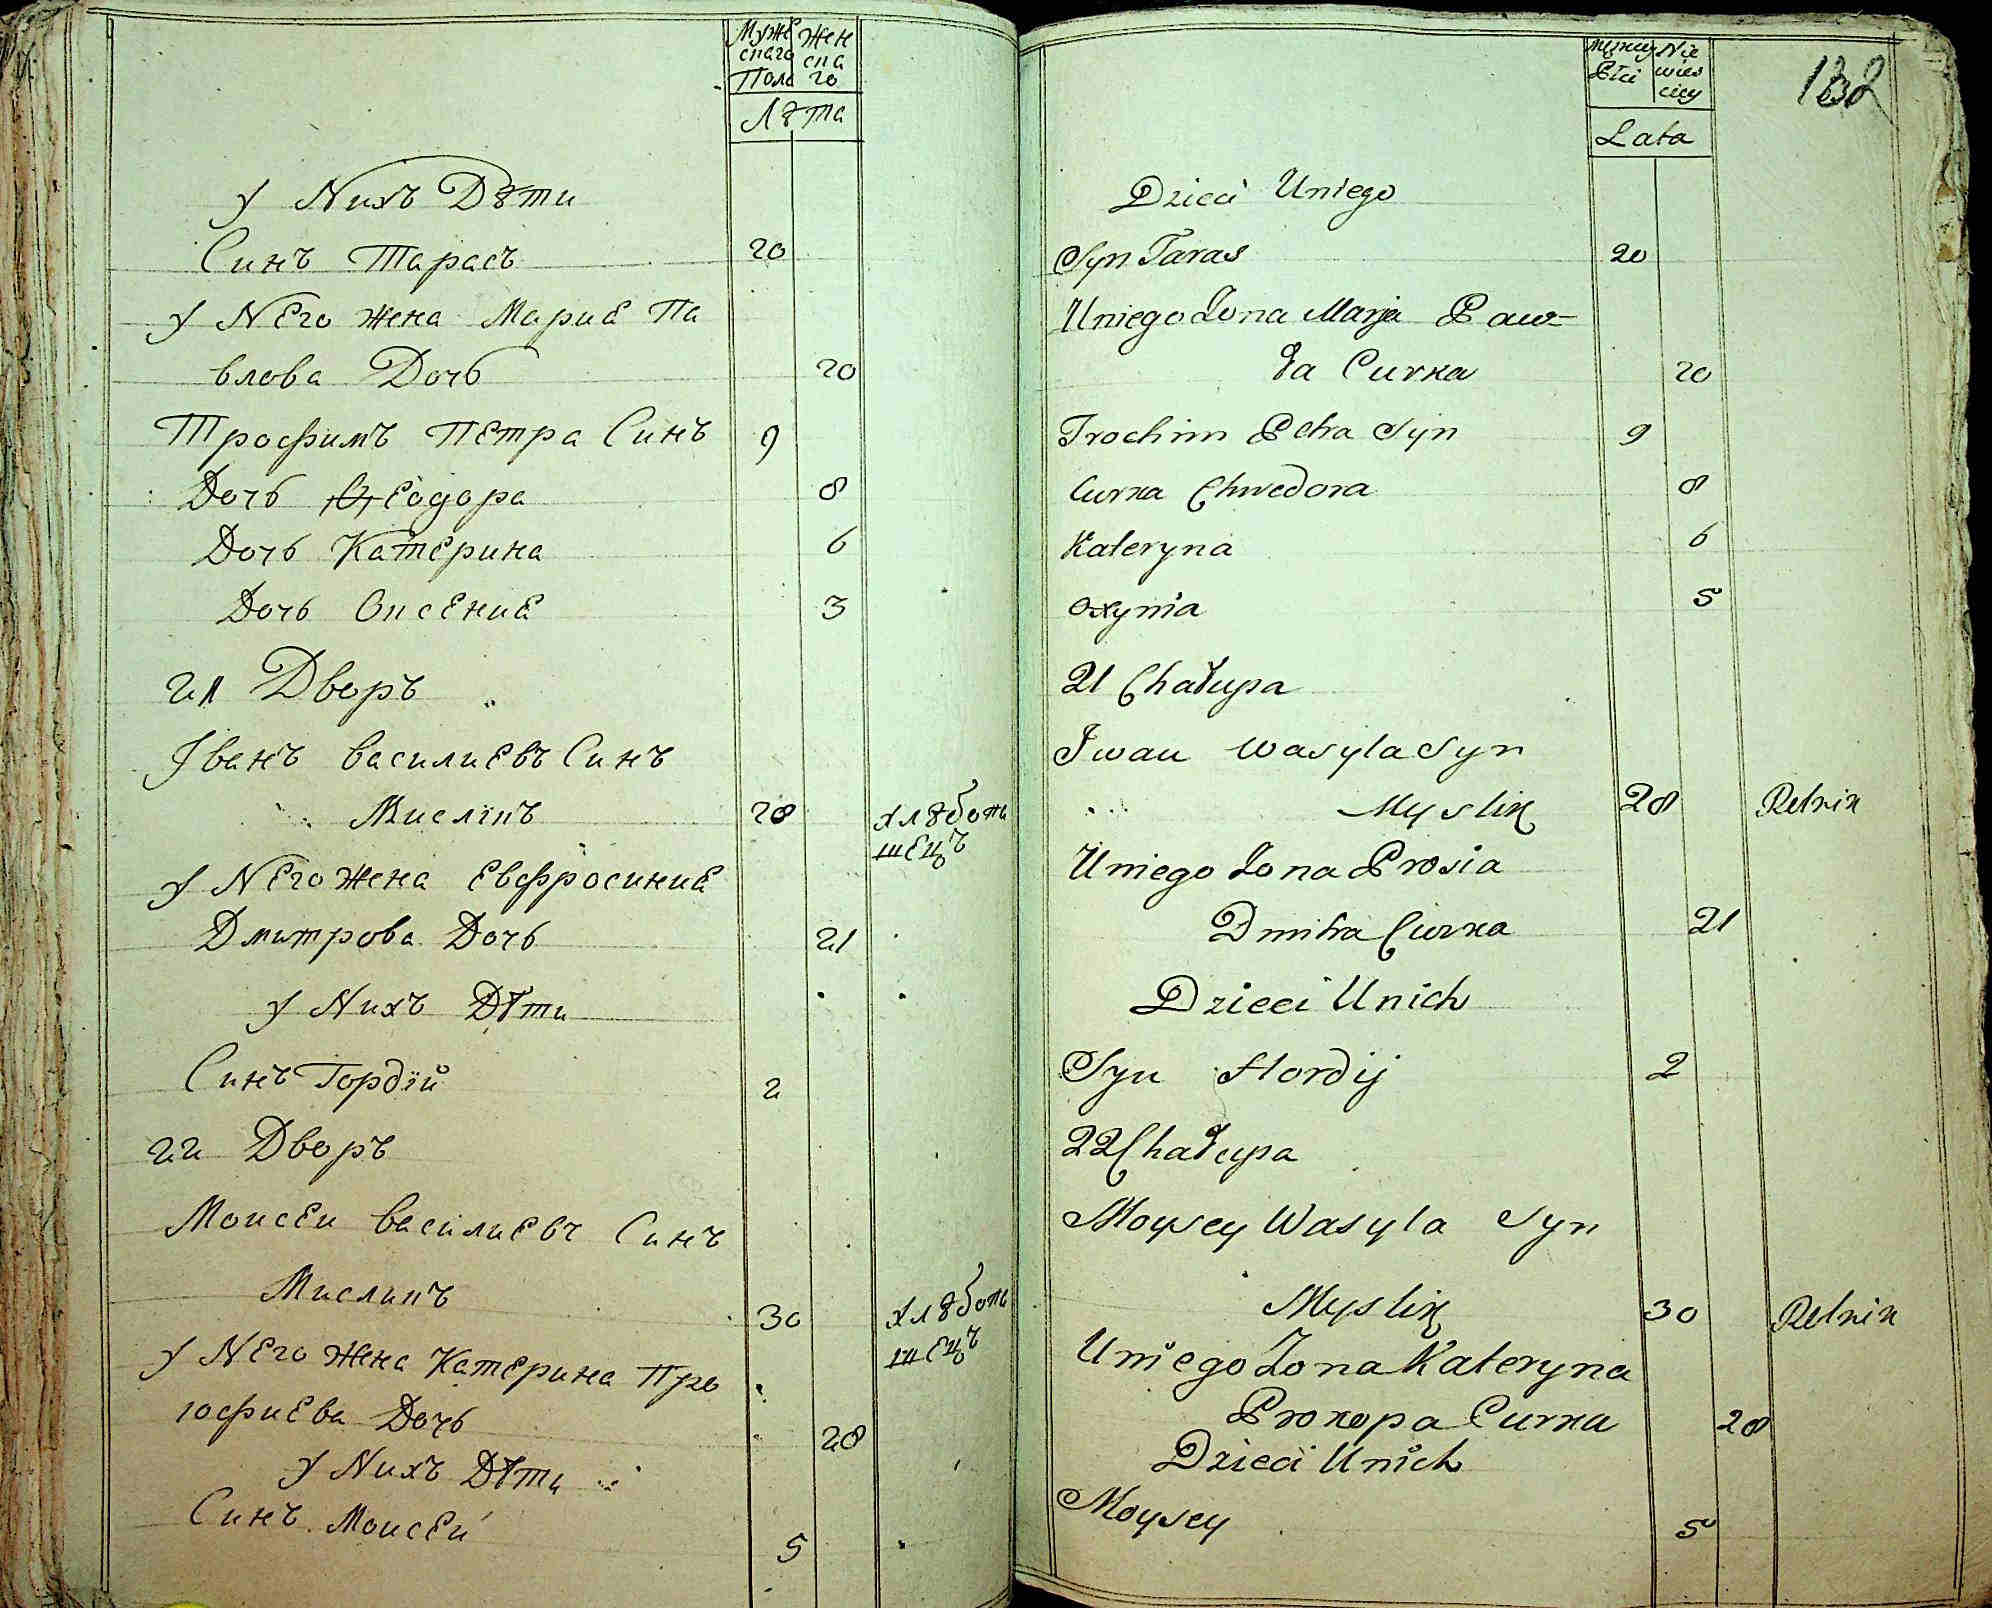 Муже Жен
скаго ска
Пола го
Лѣта
У Нихъ Дѣти
Синъ Тарасъ 20
У Него жена Мариѣ Па
влова Дочь 20
Трофимъ Петра Синъ 9
Дочь Ѳеодора 8
Дочь Катерина 6
Дочь Оксениѣ 3
21 Дворъ
Іванъ василиевъ Синъ
Мислікъ 28 хлѣбопа
шецъ
У Него Жена Евфросиниѣ
Дмитрова Дочь 21
У Нихъ Дѣти
Синъ Гордій 2
22 Дворъ
Моисеи василиевъ Синъ
Мисликъ 30 хлѣбопа
шецъ
У Него Жена Катерина Пр
кофиева Дочь 28
У Нихъ Дѣти
Синъ Моисей 5
męzkiey Nie
Płci wies
ciey
Lata
132
Dzieci Uniego
Syn Taras 20
Uniego Żona Marja Paw=
ła Curka 20
Trochim Petra Syn 9
Curka Chwedora 8
Kateryna 6
Oxynia 5
21 Chałupa
Iwan Wasyla Syn
Myslik 28 Rolnik
Uniego Żona Prosia
Dmitra Curka 21
Dzieci Unich
Syn Hordij 2
22 Chałupa
Moysey Wasyla Syn
Myslik 30 Rolnik
Uniego Żona Kateryna
Prokopa Curka 28
Dzieci Unich
Moysey 5